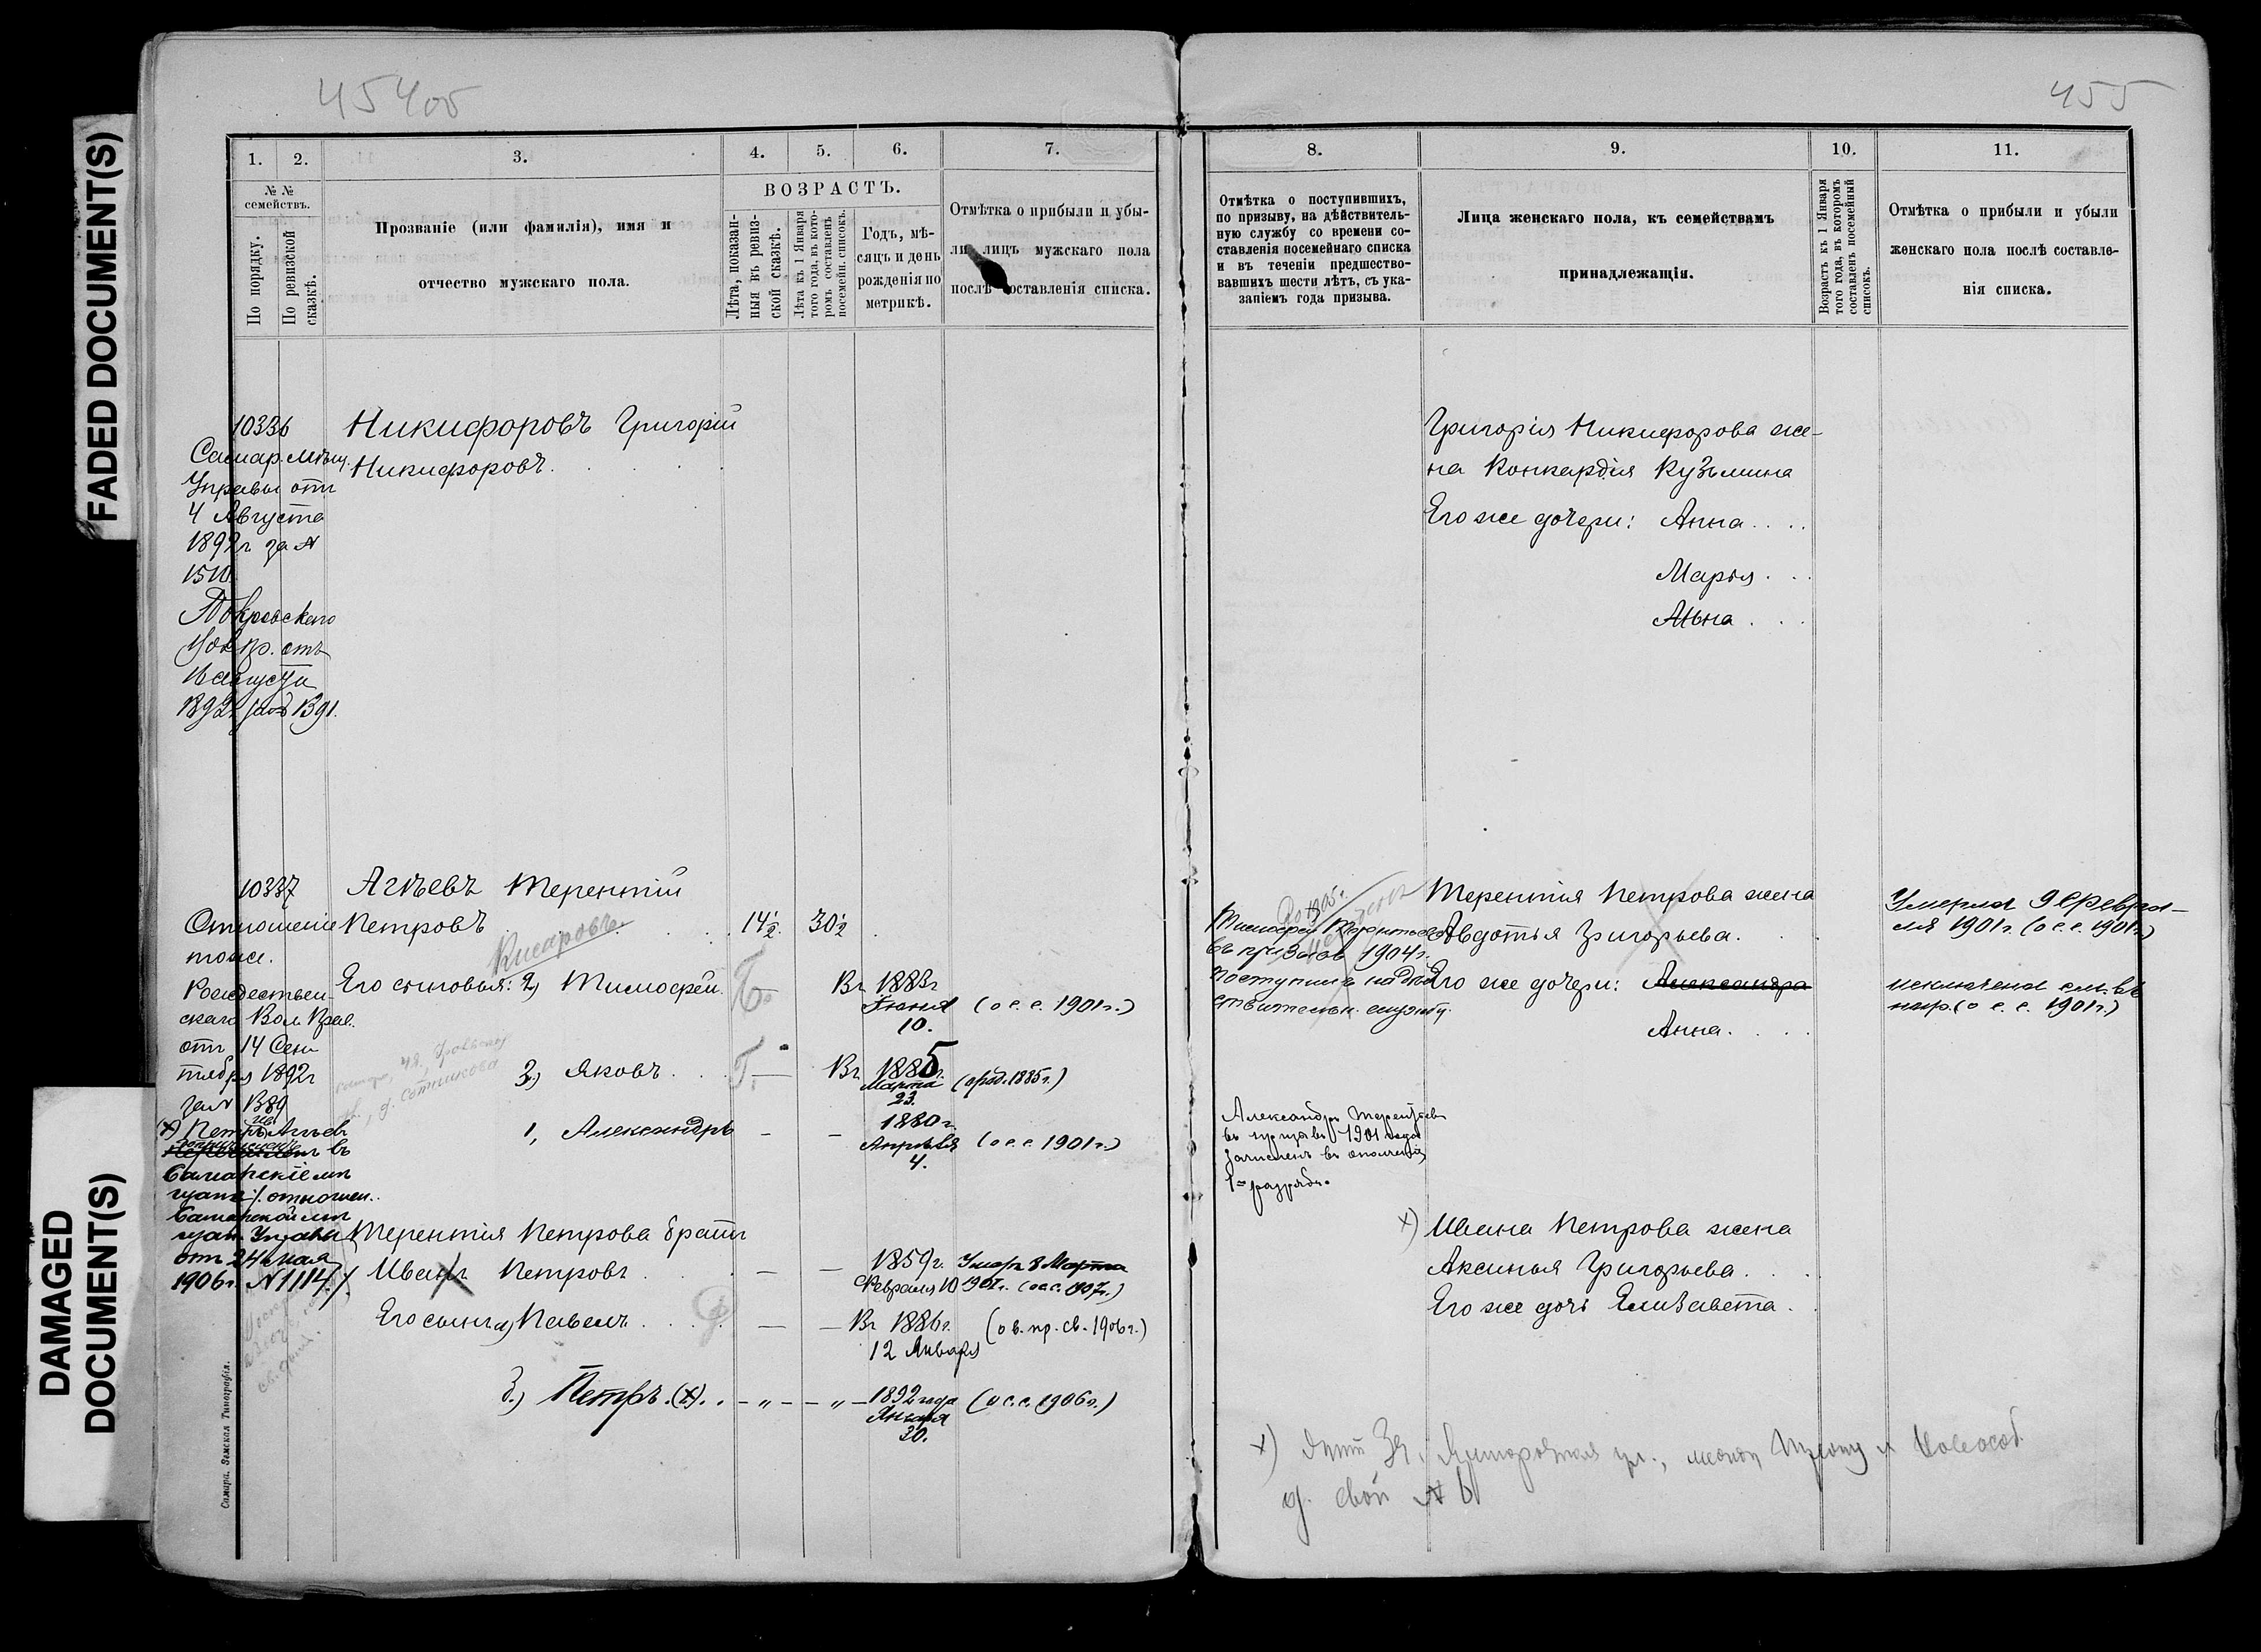 FADED DOCUMENT(S)
DAMAGED
DOCUMENT(S)
454об
1. 2. 3. 4. 5. 6. 7.
№ №
семействъ.
По порядку.
По ревизской
сказкѣ.
Прозваніе (или фамилія), имя и
отчество мужскаго пола.
ВОЗРАСТЪ.
Лѣта, показан-
ныя въ ревиз-
ской сказкѣ.
Лѣта къ 1 Января
того года, въ кото-
ромъ составленъ
посемейн. списокъ.
Годъ, мѣ-
сяцъ и день
рожденія по
метрикѣ.
Отмѣтка о прибыли и убы-
ли лицъ мужскаго пола
послѣ составленія списка.
10336
Самар. Мѣщ.
Управы отъ
4 Августа
1892г за №
1510
Покровскаго
отъ
1892г 1391.
Никифоровъ Григорій
Никифоровъ.
10337
Отношеніе
тоже.
Рождествен-
скаго Вол. Прав.
отъ 14 Сен
тября 1892г
за № 1389
Агѣевъ Терентій
Петровъ 14½ 30½
Кинаровъ.
Его сыновья: 2, Тимофей. Вг 1883г
Іюня (о с. с. 1901г.)
10.
3, Яковъ. Вг 1885г.
Марта (о род. 1885г.)
23.
1, Александръ — — 1880г.
Апрѣля (о с. с. 1901г.)
4.
х) Петръ Ив. Агѣевъ
въ
Самарскіе мѣ
щане /. отношен.
Самарской мѣ
щан. Управы
отъ 24 мая
1906г. №1114./.
Терентія Петрова братъ
Иванъ Петровъ — — 1859г. Умеръ 8 Марта
Февраля 10 1907г. (о с. с. 1907г.)
Его сынъ а) Павелъ — — Вг 1886г. (о в. пр. св. 1906г.)
12 Января
б) Петръ. (х). - „ - - „ - 1892 года (о с. с. 1906г.)
Января
30.
Самара. Земская Типографія.
455
8. 9. 10. 11.
Отмѣтка о поступившихъ,
по призыву, на дѣйствитель-
ную службу со времени со-
ставленія посемейнаго списка
и въ теченіи предшество-
вавшихъ шести лѣтъ, съ ука-
заніемъ года призыва.
Лица женскаго пола, къ семействамъ
принадлежащія.
Возрастъ къ 1 Января
того года, въ которомъ
составленъ посемейный
списокъ.
Отмѣтка о прибыли и убыли
женскаго пола послѣ составле-
нія списка.
Григорія Никифорова же-
на Конкардія Кузьмина
Его же дочери: Анна
Марія
Анна
Тимофей Терентьевъ
въ призывъ 1904г.
поступилъ на дѣй
ствительн. службу.
Терентія Петрова жена
Авдотья Григорьева.
Его же дочери: Александра
Анна.
Умерла 9 Февра-
ля 1901г. (о с. с. 1901г.)
исключена
(о с. с. 1901г.)
Александръ Терентьевъ
въ призывъ 1901 года
зачисленъ въ ополченіе
1го разряда.
х) Ивана Петрова жена
Аксинья Григорьева.
Его же дочь Елизавета.
х)
д. свой № 6